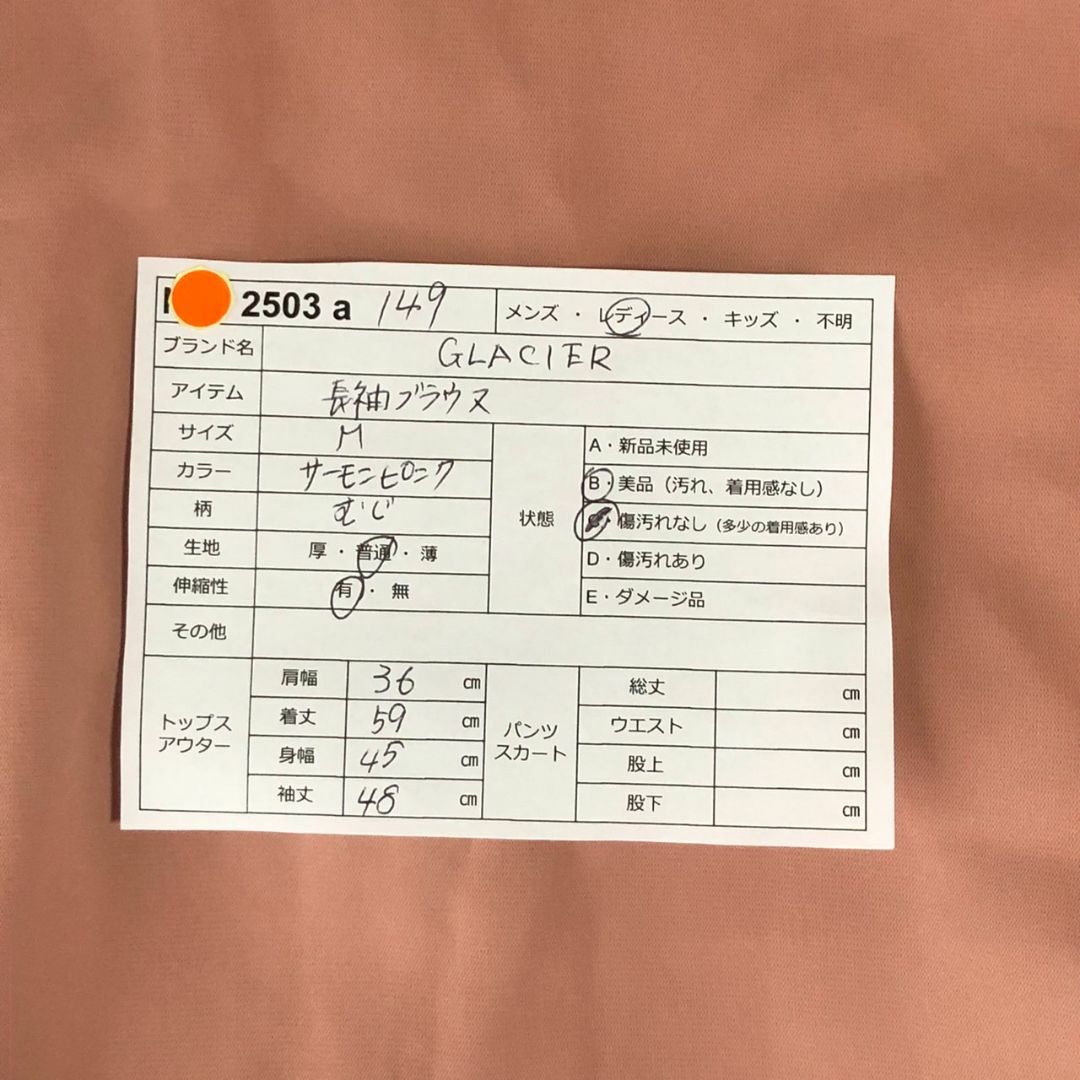 2503 a 149 メンズ ・ レディース ・ キッズ ・ 不明
ブランド名 GLACIER
アイテム 長袖ブラウス
サイズ M
カラー サーモンピンク
柄 むじ
生地 厚 ・ 普通 ・ 薄
伸縮性 有 ・ 無
状態
A・新品未使用
B・美品（汚れ、着用感なし）
・傷汚れなし（多少の着用感あり）
D・傷汚れあり
E・ダメージ品
その他
トップス
アウター
肩幅 36 ㎝
着丈 59 ㎝
身幅 45 ㎝
袖丈 48 ㎝
パンツ
スカート
総丈 ㎝
ウエスト ㎝
股上 ㎝
股下 ㎝